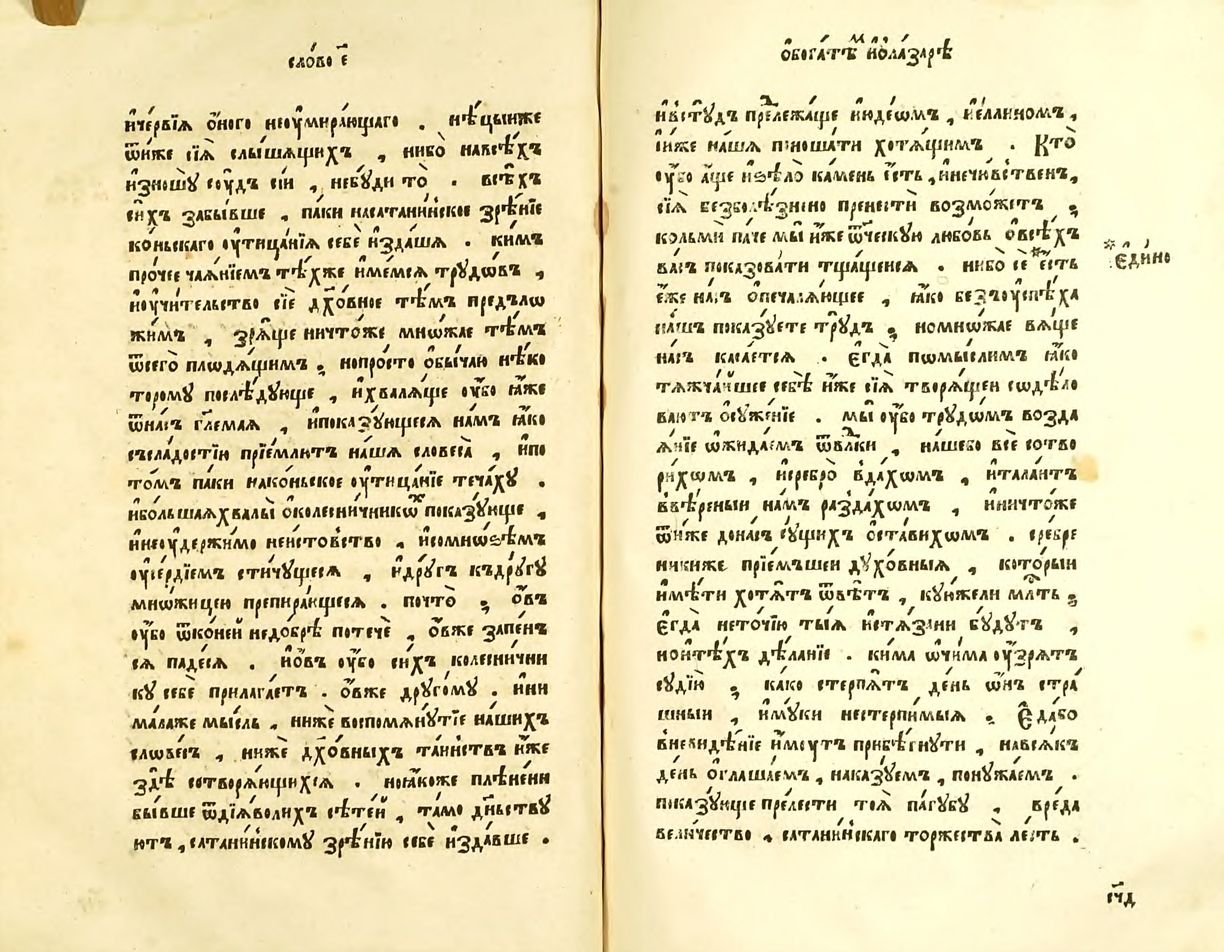 сло́во є҃
и҆че́рвїѧ ѻ҆́ного неѹ҆мира́ющаго . нѣ́цыиже
ѿни́же сїѧ̀ слы́шѧщихъ , нибо̀ навсѣ́хъ
и҆зношꙋ̀ сѹ́дъ сїи , небꙋ́ди то̀ . всѣ́хъ
си́хъ забы́вше , па́ки насатани́нское зрѣ́нїе
ко́ньскаго ѹ҆тица́нїѧ себѐ и҆зда́шѧ . ки́мъ
про́чее ча́ѧнїемъ тѣ́хже и҆́мемсѧ трꙋдѡ́въ ,
и҆ѹ҆чи́тельство сїѐ дх҃о́вное тѣ́мъ предъло
жи́мъ , зрѧ́ще ничто́же мно́жае тѣ́мъ
ѿсего̀ плодѧ́щимъ , нопро́сто ѻ҆бы́чаю нѣ́ко
торомꙋ послѣ́дꙋюще , и҆хва́лѧще ѹ҆́бо ꙗ҆́же
ѿна́съ гл҃емаѧ , и҆пока́зꙋющесѧ на́мъ ꙗ҆́ко
съсла́достїю прїе́млютъ на́шѧ словеса̀ , и҆по
то́мъ па́ки нако́ньское ѹ҆тица́нїе теча́хꙋ .
и҆бо́льшаѧхвалы̀ ѻ҆колесни́чникѡⷯ пока́зꙋюще ,
и҆неѹ҆держи́мо неи́стовство , и҆сомно́ѕѣмъ
ѹ҆се́рдїемъ стичꙋ́щесѧ , и҆дрꙋ́гъ къдрꙋ́гꙋ
мно́жицею препира́ющесѧ . почто̀ , ѻ҆́въ
ѹ҆́бо ѿко́ней недо́брѣ потечѐ , ѻ҆́вже запе́н
сѧ паде́сѧ . и҆ѻ҆́въ ѹ҆́бо си́хъ колесни́чни
кꙋ себѐ прилага́етъ . ѻ҆́вже дрꙋго́мꙋ . ни
мала́же мы́сль , нижѐ воспомѧнꙋ́тїе на́шихъ
слове́съ , нижѐ дх҃о́вныхъ та́инствъ и҆́же
здѣ̀ сотворѧ́ющихсѧ . ноꙗ҆́коже плѣне́ни
бы́вше ѿдїѧ́волихъ сѣ́тей , та́мо дн҃ьствꙋ
ютъ , сатани́нскомꙋ зрѣ́нїю себѐ и҆зда́вше .
ѻ҆бога́тѣⷨ и҆ѻ҆ла́зарѣ
и҆встꙋ́дъ прⷣележа́ще и҆юде́ѡмъ , и҆є҆́ллином​ъ ,
и҆и́же на́шѧ поноша́ти хотѧ́щимъ . Кто̀
ѹ҆́бо а҆́ще и҆ѕѣло̀ ка́мень є҆́сть , и҆нечю́вственъ ,
сїѧ̀ безболѣ́знено пренестѝ возмо́жетъ ,
кольмѝ па́че мы̀ и҆́же ѻ҆ч҃ескꙋю любо́вь ѻ҆всѣ́хъ
ва́съ показова́ти тща́щеисѧ . нибо̀ сѐ *є҆́сть
є҆́же на́съ ѻ҆печалѧ́ющее , ꙗ҆́ко безъѹ҆спѣ́ха
на́шъ пока́зꙋете трꙋ́дъ , номно́жае вѧ́ще
на́съ каса́етсѧ . є҆гда̀ помы́слимъ ꙗ҆́ко
тѧжча́ишее себѣ̀ и҆́же сїѧ̀ творѧ́щеи содѣ́ло
ваютъ ѡ҆сꙋже́нїе . мы̀ ѹ҆́бо трꙋдо́мъ возда
ѧ́нїе ѡ҆жида́емъ ѿвлⷣки , на́шебо всѐ сотво
ри́хомъ , и҆сребро̀ вда́хомъ , и҆тала́нтъ
ввѣ́реныи на́мъ разда́хомъ , и҆ничто́же
ѿни́же дона́съ сꙋ́щихъ ѡ҆ста́вихомъ . сребре
ники́же прїе́мшеи дꙋхо́вныѧ , кото́рыи
и҆мѣ́ти хотѧ́тъ ѿвѣ́тъ , кꙋ́южели млⷭ҇ть ,
є҆гда̀ нето́чїю ты́ѧ и҆стѧ́зани бꙋ́дꙋтъ ,
нои҆тѣ́хъ дѣ́ланїе . ки́ма ѻ҆чи́ма ѹ҆́зрѧтъ
сꙋдїю̀ , ка́ко стерпѧ́тъ де́нь ѻ҆́нъ стра́
шныи , и҆мꙋ́ки нестерпи́мыѧ . Є҆да́бо
вневи́дѣнїе и҆́мꙋтъ прибѣ́гнꙋти , навсѧ́къ
де́нь ѻ҆глаша́емъ , нака́зꙋемъ , понꙋжа́емъ .
пока́зꙋюще пре́лести тоѧ̀ па́гꙋбꙋ , вреда̀
вели́чество , сатани́нскаго торжества̀ ле́сть .
*є҆ди́но
сч҃д